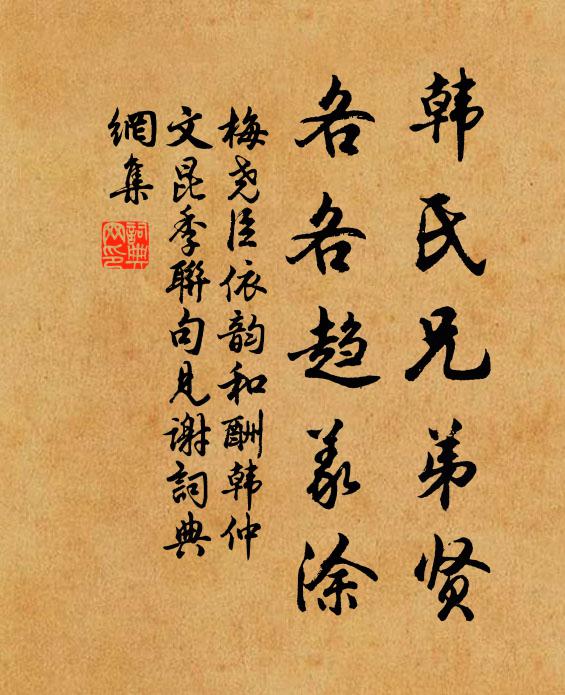 韩氏兄弟贤
各各趋义涂
梅尧臣依韵和酬韩仲
文昆季联句见谢词典
网集
词典
网印